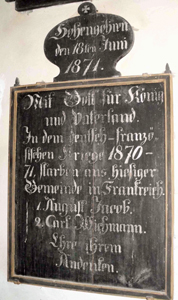 Hohengöhren
den 18ten Juni
1871.
Mit Gott für König
und Vaterland.
In dem deutsch-franzö-
sischen Kriege 1870-
71, starben aus hiesiger
Gemeinde in Frankreich.
1. August Jacob.
2. Carl Wichmann.
Ehre ihrem
Andenken.